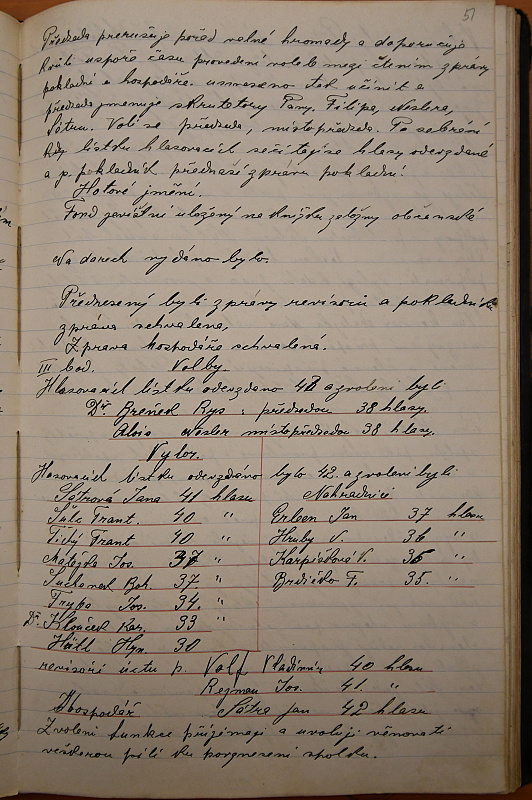 51
Předseda přerušuje pořad valné hromady a doporučuje
kvůli úspoře času provedení voleb mezi čtením zprávy
pokladní a hospodáře. usneseno tak učiniti a
předseda jmenuje skrutátory Pány. Filipa, Weslera,
Šátru. Volí se předseda, místopředseda. Po sebrání
kdy lístku hlasovacích sečítají se hlasy odevzdané
a p. pokladník přednáší zprávu pokladní:
Hotové jmění.
Fond zařízení uložený na knížku záložny občanské
Na darech vydáno bylo.
Přednesený byli zprávy revisorů a pokladníka
zpráva schválena,
Zpráva hospodáře schválená.
III bod. Volby.
Hlasovacích lístku odevzdáno 42 a zvoleni byli
Dr. Rys: předsedou 38 hlasy.
Alois Wesler místopředsedou 38 hlasy.
Výbor.
Hlasovacích lístku odevzdáno bylo 42. a zvoleni byli
Šátrová Jana 41 hlasu Náhradníci
Šulc Frant. 40 " Erben Jan 37 hlasu
Tichý Frant 40 " Hrubý V. 36 "
Matějka Jos. 37 " Karpíšková V. 36 "
Suchánek Boh. 37 " Brdičko F. 35. "
Trypo Jos. 34. "
Dr. Klouček Kar. 33 "
Hütl Hyn. 30
revisoři účtu p. Volf Vladimír 40 hlasu
Rejman Jos. 41. "
Hospodář Šátra Jan 42 hlasu
Zvolení funkce přijímají a uvolují věnovati
veškerou píli ku povznesení spolku.